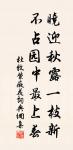 曉迎秋露一枝新
不占園中最上春
杜牧紫薇花詞典網集